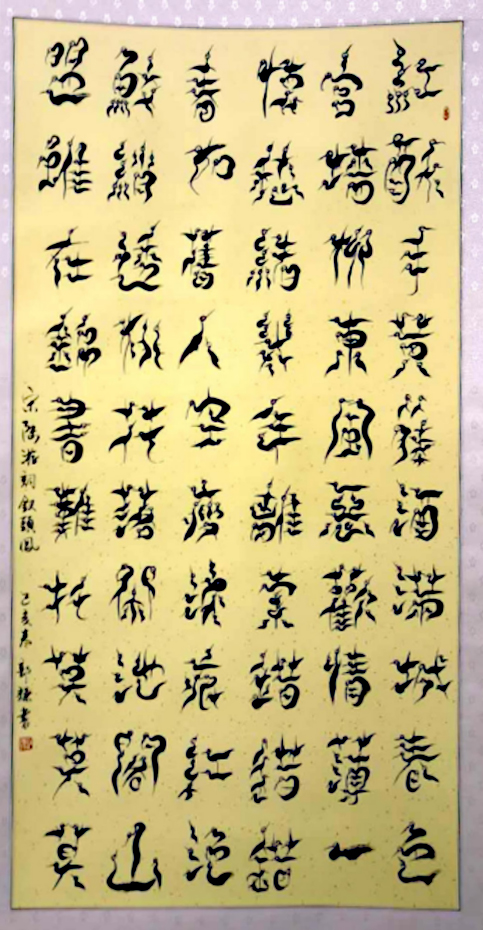 紅酥手黃縢酒滿城春色
宮牆柳東風惡歡情薄一
懷愁緒幾年離索錯錯錯
春如舊人空瘦淚痕紅浥
鮫綃透桃花落閑池閣山
盟雖在錦書難托莫莫莫
宋陸游詞釵頭鳳 己亥春 書